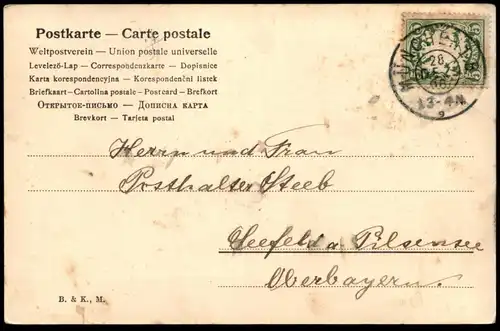 Postkarte — Carte postale
Weltpostverein — Union postale universelle
Levelező-Lap — Correspondenzkarte — Dopisnice
Karta korespondencyjna — Korespondenční listek
Briefkaart — Cartolina postale — Postcard — Brefkort
Открытое письмо — Дописна карта
Brevkort — Tarjeta postal
28
3-4N
Herrn und Frau
Posthalter Steeb
Seefeld a Pilsensee
Oberbayern.
B. & K., M.